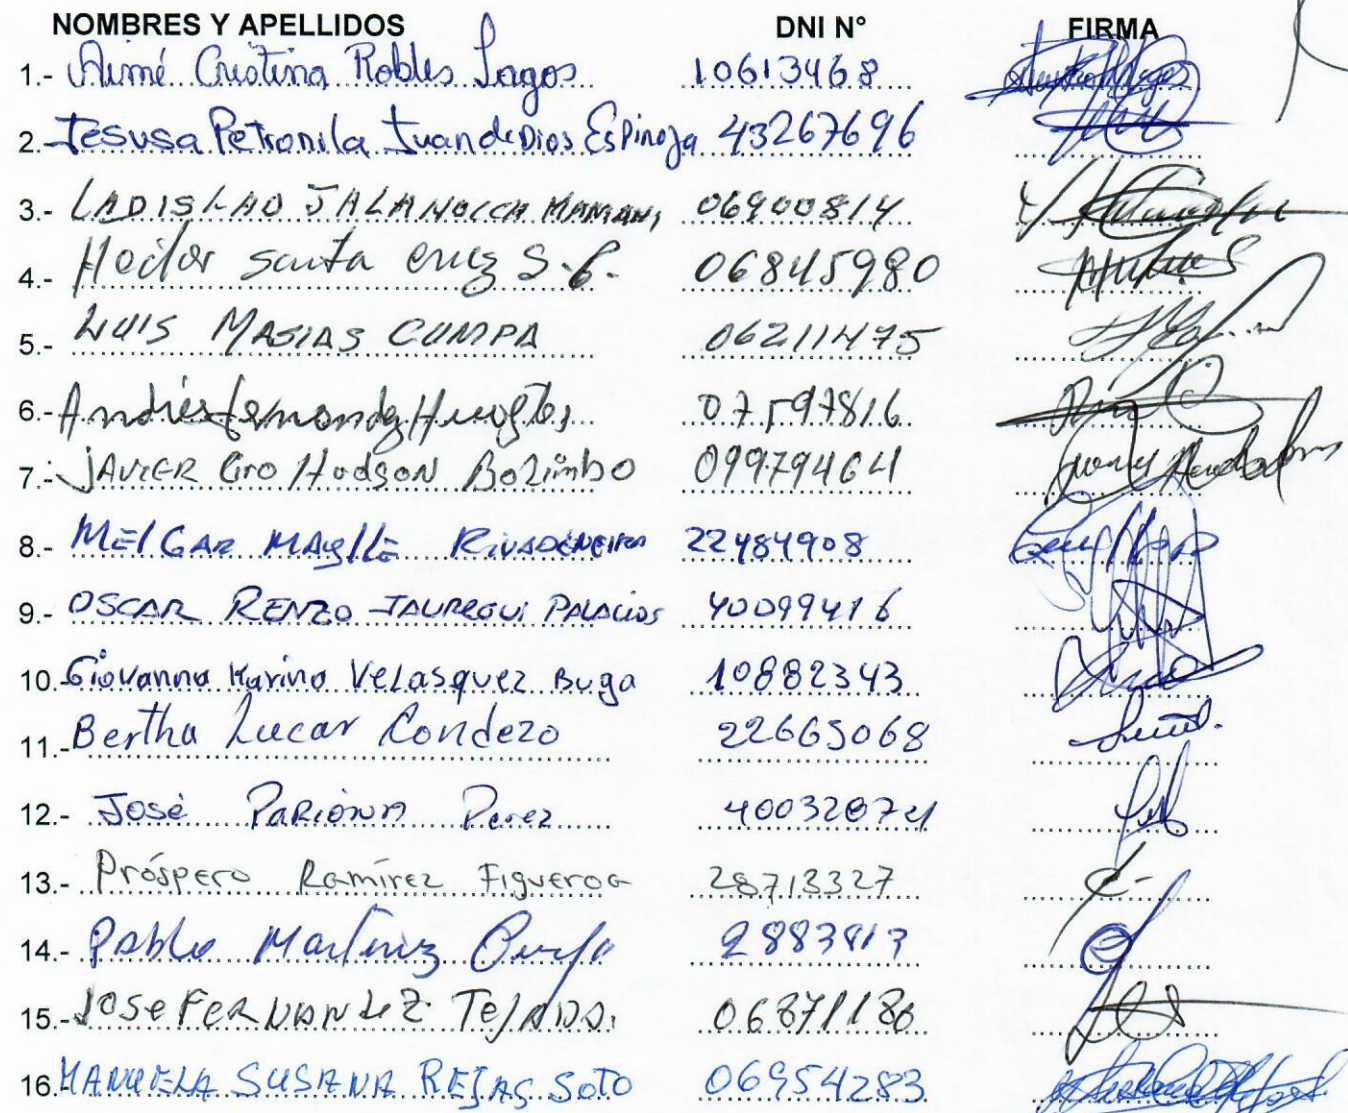 NOMBRES Y APELLIDOS DNI N° FIRMA
1.- Aimé Cristina Robles Lagos 10613468
2.- Jesusa Petronila Juan de Dios Espinoza 43267696
3.- LADISLAO JALANOCCA MAMANI 06900814
4.- Hector santa cruz S.C. 06845980
5.- LUIS MASIAS CUMPA 06211475
6.- Andrés 07597816
7.- JAVIER Ciro Hudson Bozimbo 09979464
8.- MELGAR MAYLLE RIVADENEIRA 22484908
9.- OSCAR RENZO JAUREGUI PALACIOS 40099416
10.- Giovanna Karina Velasquez Buga 10882343
11.- Bertha Lucar Condezo 22665068
12.- José PARIONA Perez
13.- Próspero Ramírez Figueroa 28713327
14.- Pablo Martinez
15.- JOSE FERNANDEZ TEJADA.
16.- MANUELA SUSANA REJAS SOTO 06954283